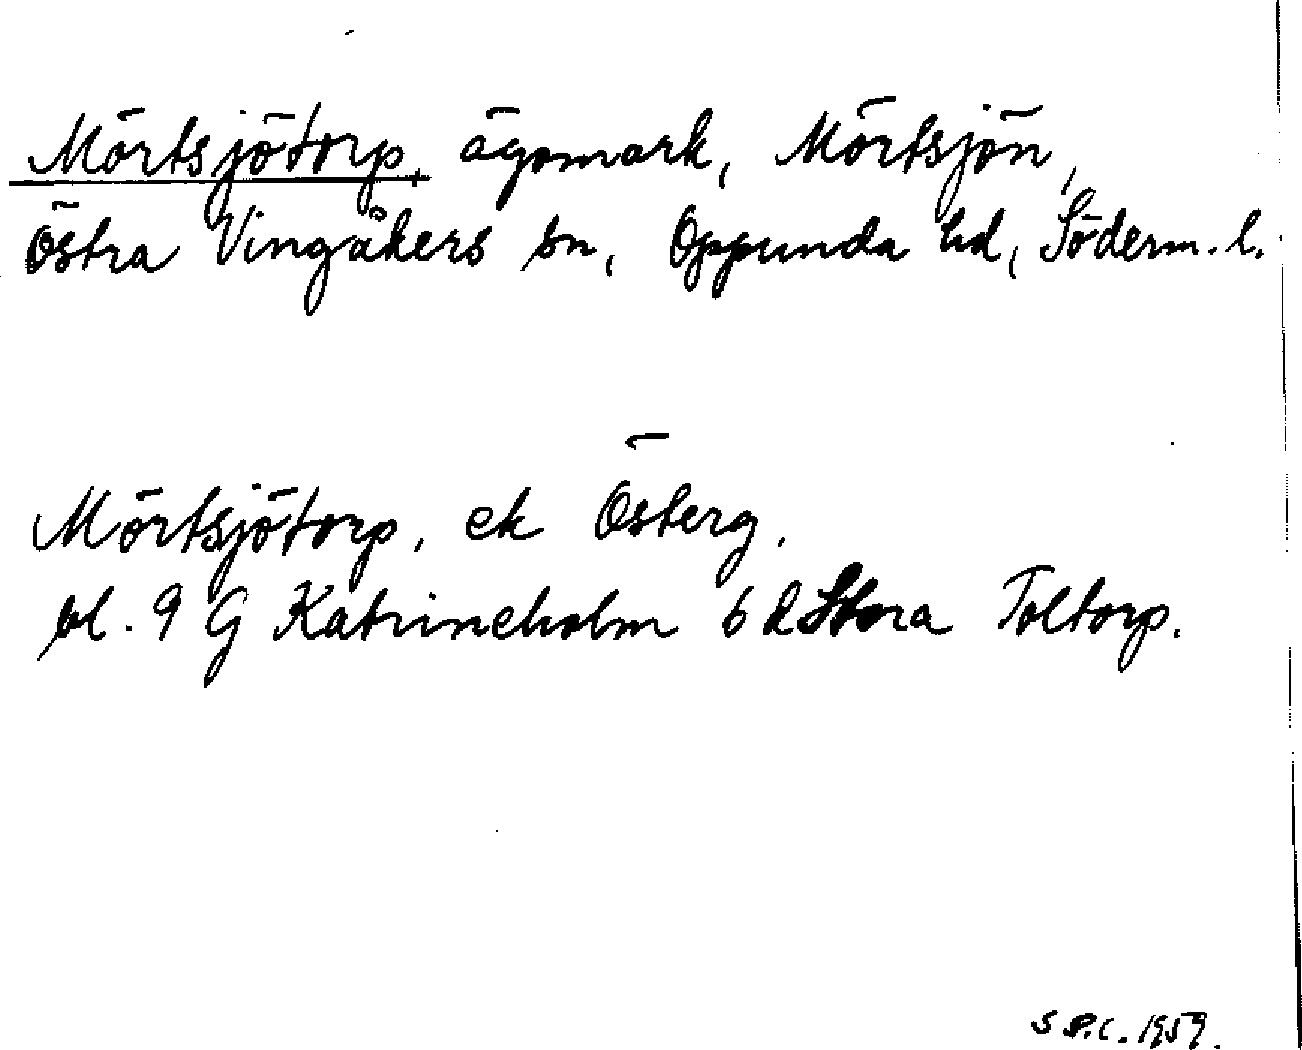 Mörtsjötorp, ägomark, Mörtsjön,
Östra Vingåkers sn, Oppunda hd, Söderm. l.
Mörtsjötorp, ek Österg,
bl. 9 G Katrineholm 6 d Stora Toltorp.
S P.C. 1959.